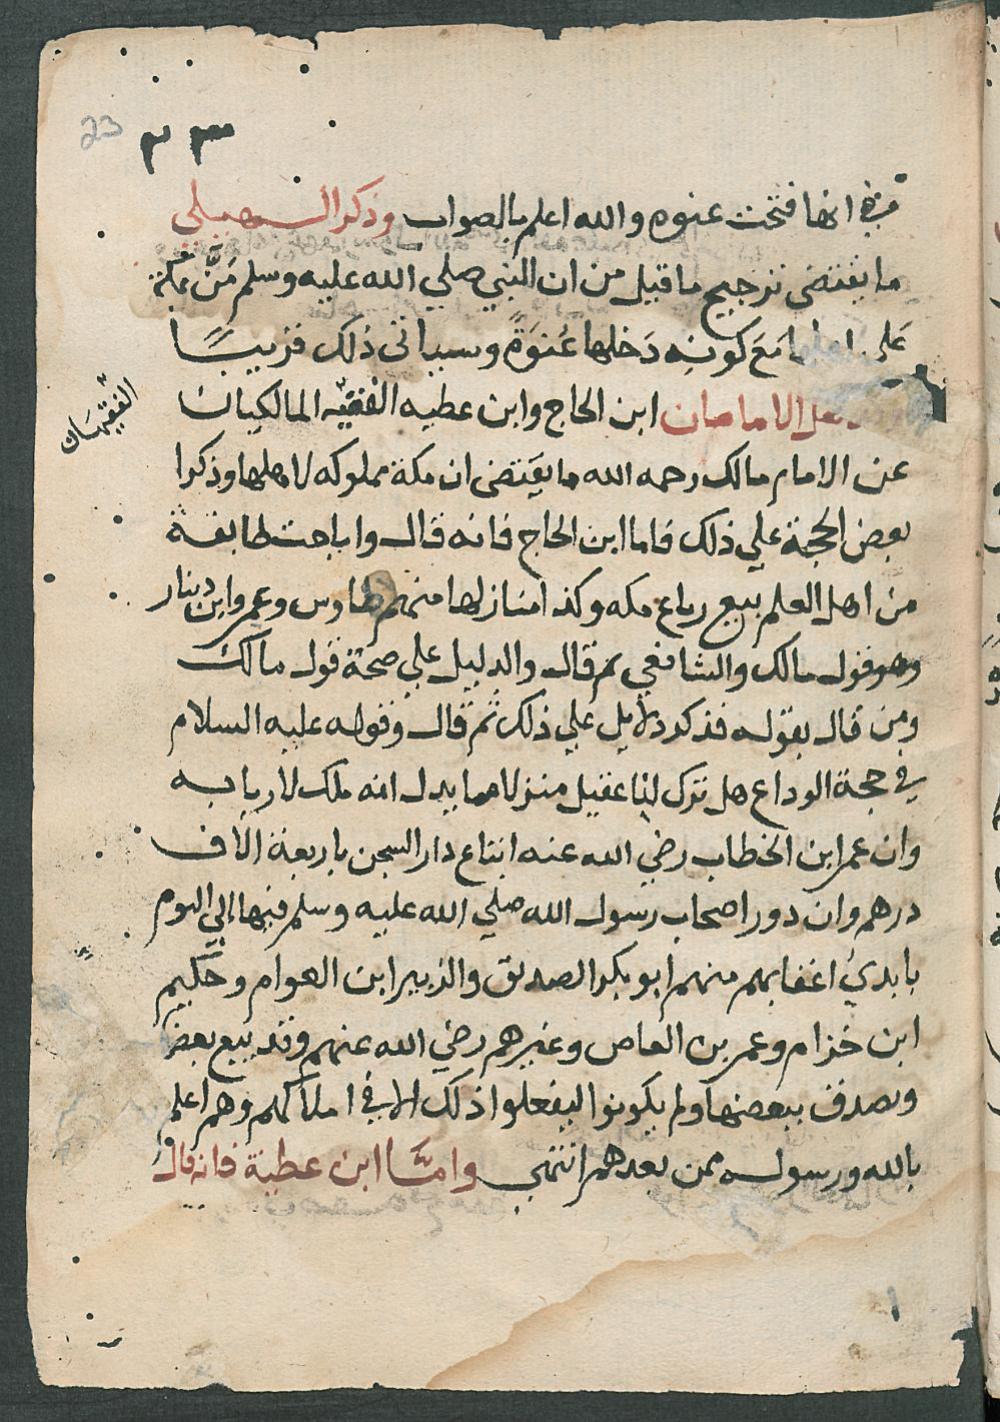 23
في انها فتحت عنوه والله اعلم بالصواب وذكر السهيلي
ما يقتضى ترجيح ما قيل من ان النبي صلي الله عليه وسلم مَنَّ بمكة
علي اهلها مَعَ كونه دَخلها عُنوَةً وسياتى ذلك قريبًا
الامامان ابن الحاج وابن عطيه الفقيه المالكيان
الفقيهان
عن الامام مالك رحمه الله ما يقتضى ان مكة مملوكه لاهلها وذكرا
بعض الحجة علي ذلك فاما ابن الحاج فانه قال واباحت طايفة
من اهل العلم بيع رباع مكه وكذا منازلها منهم طاوس وعمرو ابن دينار
وهو قول مالك والشافعي ثم قال والدليل علي صحة قول مالك
ومن قال بقوله فذكر دلايل علي ذلك ثم قال وقوله عليه السلام
في حجة الوداع هل ترك لنا عقيل منزلا مما يدل انه ملك لاربابه
وان عمر ابن الخطاب رضي الله عنه ابتاع دار السجن باربعة الاف
درهم وان دور اصحاب رسول الله صلي الله عليه وسلم فيها الي اليوم
بايدي اعقابهم منهم ابو بكر الصديق والزبير ابن العوام وحكيم
ابن حزام وعمر بن العاص وغيرهم رضي الله عنهم وقد بيع بعض
وتصدق ببعضها ولم يكونوا ليفعلوا ذلك الا في املاكهم وهم اعلم
بالله ورسوله ممن بعدهم انتهى وامَّا ابن عطية فانه قال